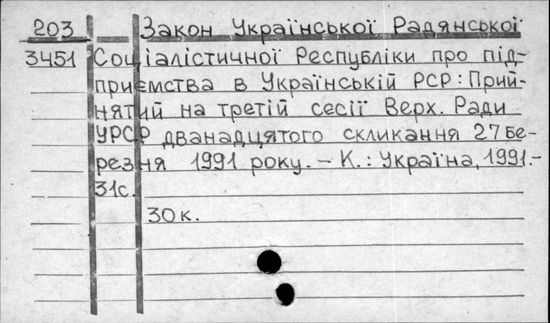 203 Закон Української Радянської
3451 Соціалістичної Республіки про під-
приємства в Українській РСР: Прий-
нятий на третій сесії Верх. Ради
УРСР дванадцятого скликання 27 бе-
резня 1991 року. – К.: Україна, 1991.-
31с.
30 к.